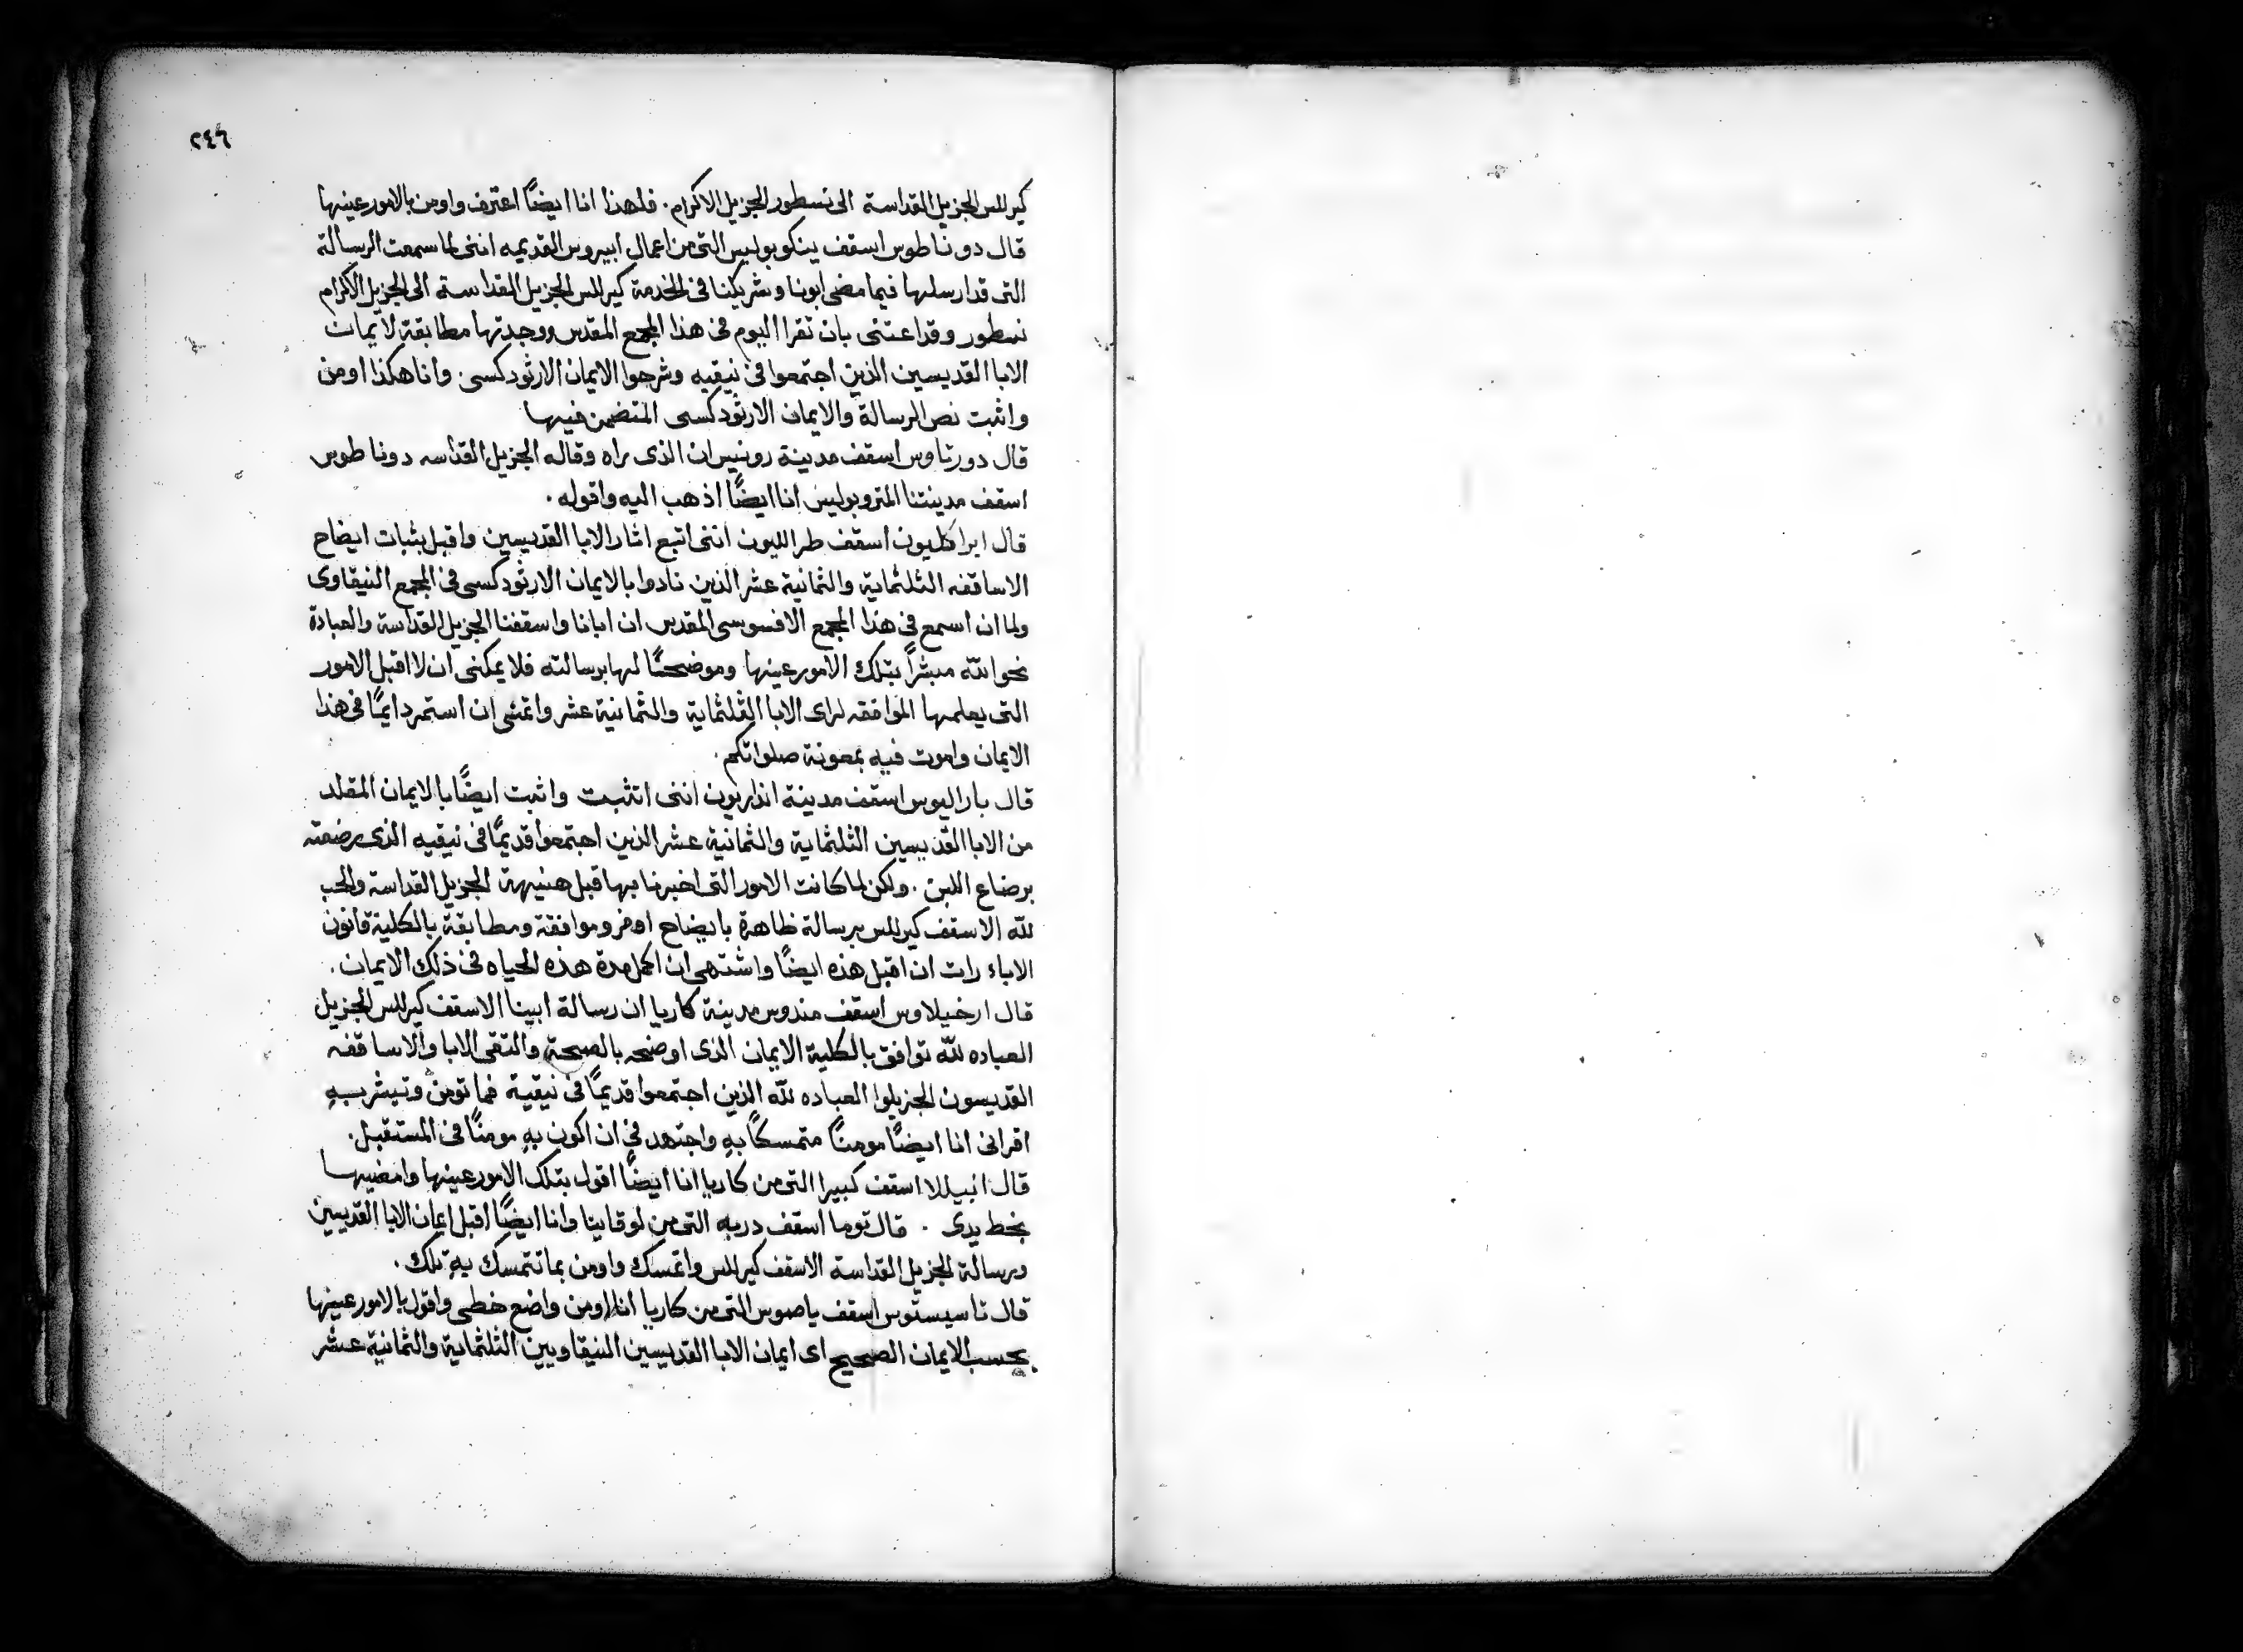 ٢٤٦
كيرللس الجزيل القداسة الى نسطور الجزيل الاكرام. فلهذا انا ايضًا اعترف واومن بالامور عينها
قال دوناطوس اسقف ينكوبوليس التى من اعمال ابيروس القديمه اننى لما سمعت الرسالة
التى قد ارسلها فيما مضى ابونا وشريكنا فى الخدمة كيرللس الجزيل القداسة الى الجزيل الاكرام
نسطور وقد اعتنى بان تقرا اليوم فى هذا المجمع المقدس ووجدتها مطابقة لايمان
الابا القديسين الذين اجتمعوا فى نيقيه وشرحوا الايمان الارثودكسى. وانا هكذا اومن
واثبت نص الرسالة والايمان الارثودكسى المتضمن فيها
قال دورتاوس اسقف مدينة رونيس ان الذى راه وقاله الجزيل القداسه دوناطوس
اسقف مدينتنا المتروبوليس انا ايضًا اذهب اليه واقوله.
قال ايراكليون اسقف طرالليون اننى اتبع اثار الابا القديسين واقبل بثبات ايضاح
الاساقفه الثلثماية والثمانية عشر الذين نادوا بالايمان الارثودكسى فى المجمع النيقاوى
ولما ان اسمع فى هذا المجمع الافسوسى المقدس ان ابانا واسقفنا الجزيل القداسة والعبادة
نحو الله مبشرًا بتلك الامور عينها وموضحًا لها برسالته فلا يمكنى ان لا اقبل الامور
التى يعلمها الموافقه لراى الابا الثلثماية والثمانية عشر واتمنى ان استمر دايمًا فى هذا
الايمان واموت فيه بمعونة صلواتكم.
قال باراليوس اسقف مدينة اندابريون اننى اتثبت واثبت ايضًا بالايمان المقلد
من الابا القديسين الثلثماية والثمانية عشر الذين اجتمعوا قديمًا فى نيقيه الذى رضعته
برضاع اللبن. ولكن لما كانت الامور التى اخبرنا بها قبل هنيهة الجزيل القداسة والمحب
لله الاسقف كيرللس برسالة ظاهرة بايضاح اوفر وموافقة ومطابقة بالكلية قانون
الاباء رات ان اقبل هذه ايضًا واشتهى ان اكمل مدة هذه الحياه فى ذلك الايمان.
قال ارخيلاوس اسقف مندوس مدينة كاريا ان رسالة ابينا الاسقف كيرللس الجزيل
العباده لله توافق بالكلية الايمان الذى اوضحه بالصحة والتقى الابا والاساقفه
القديسون الجزيلوا العباده لله الذين اجتمعوا قديمًا فى نيقية فما تومن وتبشر بهِ
اقرانى انا ايضًا مومنًا متمسكًا بهِ واجتهد فى ان اكون بهِ مومنًا فى المستقبل.
قال ابيللا اسقف كبيرا التى من كاريا انا ايضًا اقول بتلك الامور عينها وامضيها
بخط يدى. قال توما اسقف دربه التى من لوقاينا وانا ايضًا اقبل ايمان الابا القديسين
ورسالة الجزيل القداسة الاسقف كيرللس واتمسك واومن بما تتمسك بهِ تلك.
قال تاسيستوس اسقف ياصوس التى من كاريا انا اومن واضع خطى واقول بالامور عينها
بحسب الايمان الصحيح اى ايمان الابا القديسين النيقاويين الثلثماية والثمانية عشر